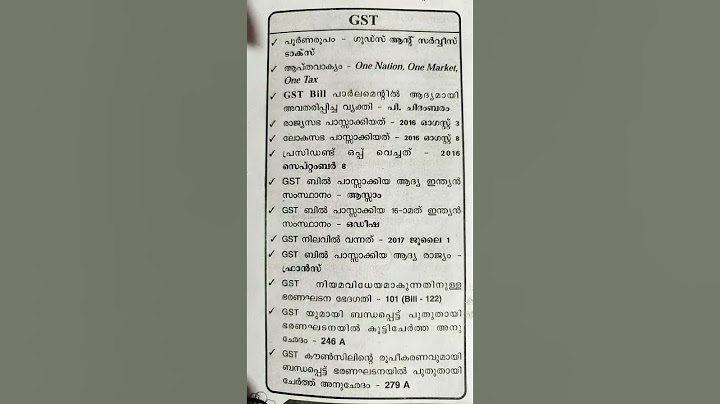 GST
✓ പൂർണരൂപം - ഗുഡ്സ് ആന്റ് സർവ്വീസ്
ടാക്സ്
✓ ആപ്തവാക്യം - One Nation, One Market,
One Tax
✓ GST Bill പാർലമെന്റിൽ ആദ്യമായി
അവതരിപ്പിച്ച വ്യക്തി - പി. ചിദംബരം
✓ രാജ്യസഭ പാസ്സാക്കിയത് - 2016 ഓഗസ്റ്റ് 3
✓ ലോകസഭ പാസ്സാക്കിയത് - 2016 ഓഗസ്റ്റ് 8
✓ പ്രസിഡണ്ട് ഒപ്പ് വെച്ചത് - 2016
സെപ്റ്റംബർ 8
✓ GST ബിൽ പാസ്സാക്കിയ ആദ്യ ഇന്ത്യൻ
സംസ്ഥാനം - ആസ്സാം
✓ GST ബിൽ പാസ്സാക്കിയ 16-ാമത് ഇന്ത്യൻ
സംസ്ഥാനം - ഒഡീഷ
✓ GST നിലവിൽ വന്നത് - 2017 ജൂലൈ 1
✓ GST ബിൽ പാസ്സാക്കിയ ആദ്യ രാജ്യം -
ഫ്രാൻസ്
✓ GST നിയമവിധേയമാകുന്നതിനുള്ള
ഭരണഘടന ഭേദഗതി - 101 (Bill - 122)
✓ GST യുമായി ബന്ധപ്പെട്ട് പുതുതായി
ഭരണഘടനയിൽ കൂട്ടിചേർത്ത അനു
ഛേദം - 246 A
✓ GST കൗൺസിലിന്റെ രൂപീകരണവുമായി
ബന്ധപ്പെട്ട് ഭരണഘടനയിൽ പുതുതായി
ചേർത്ത് അനുഛേദം - 279 A